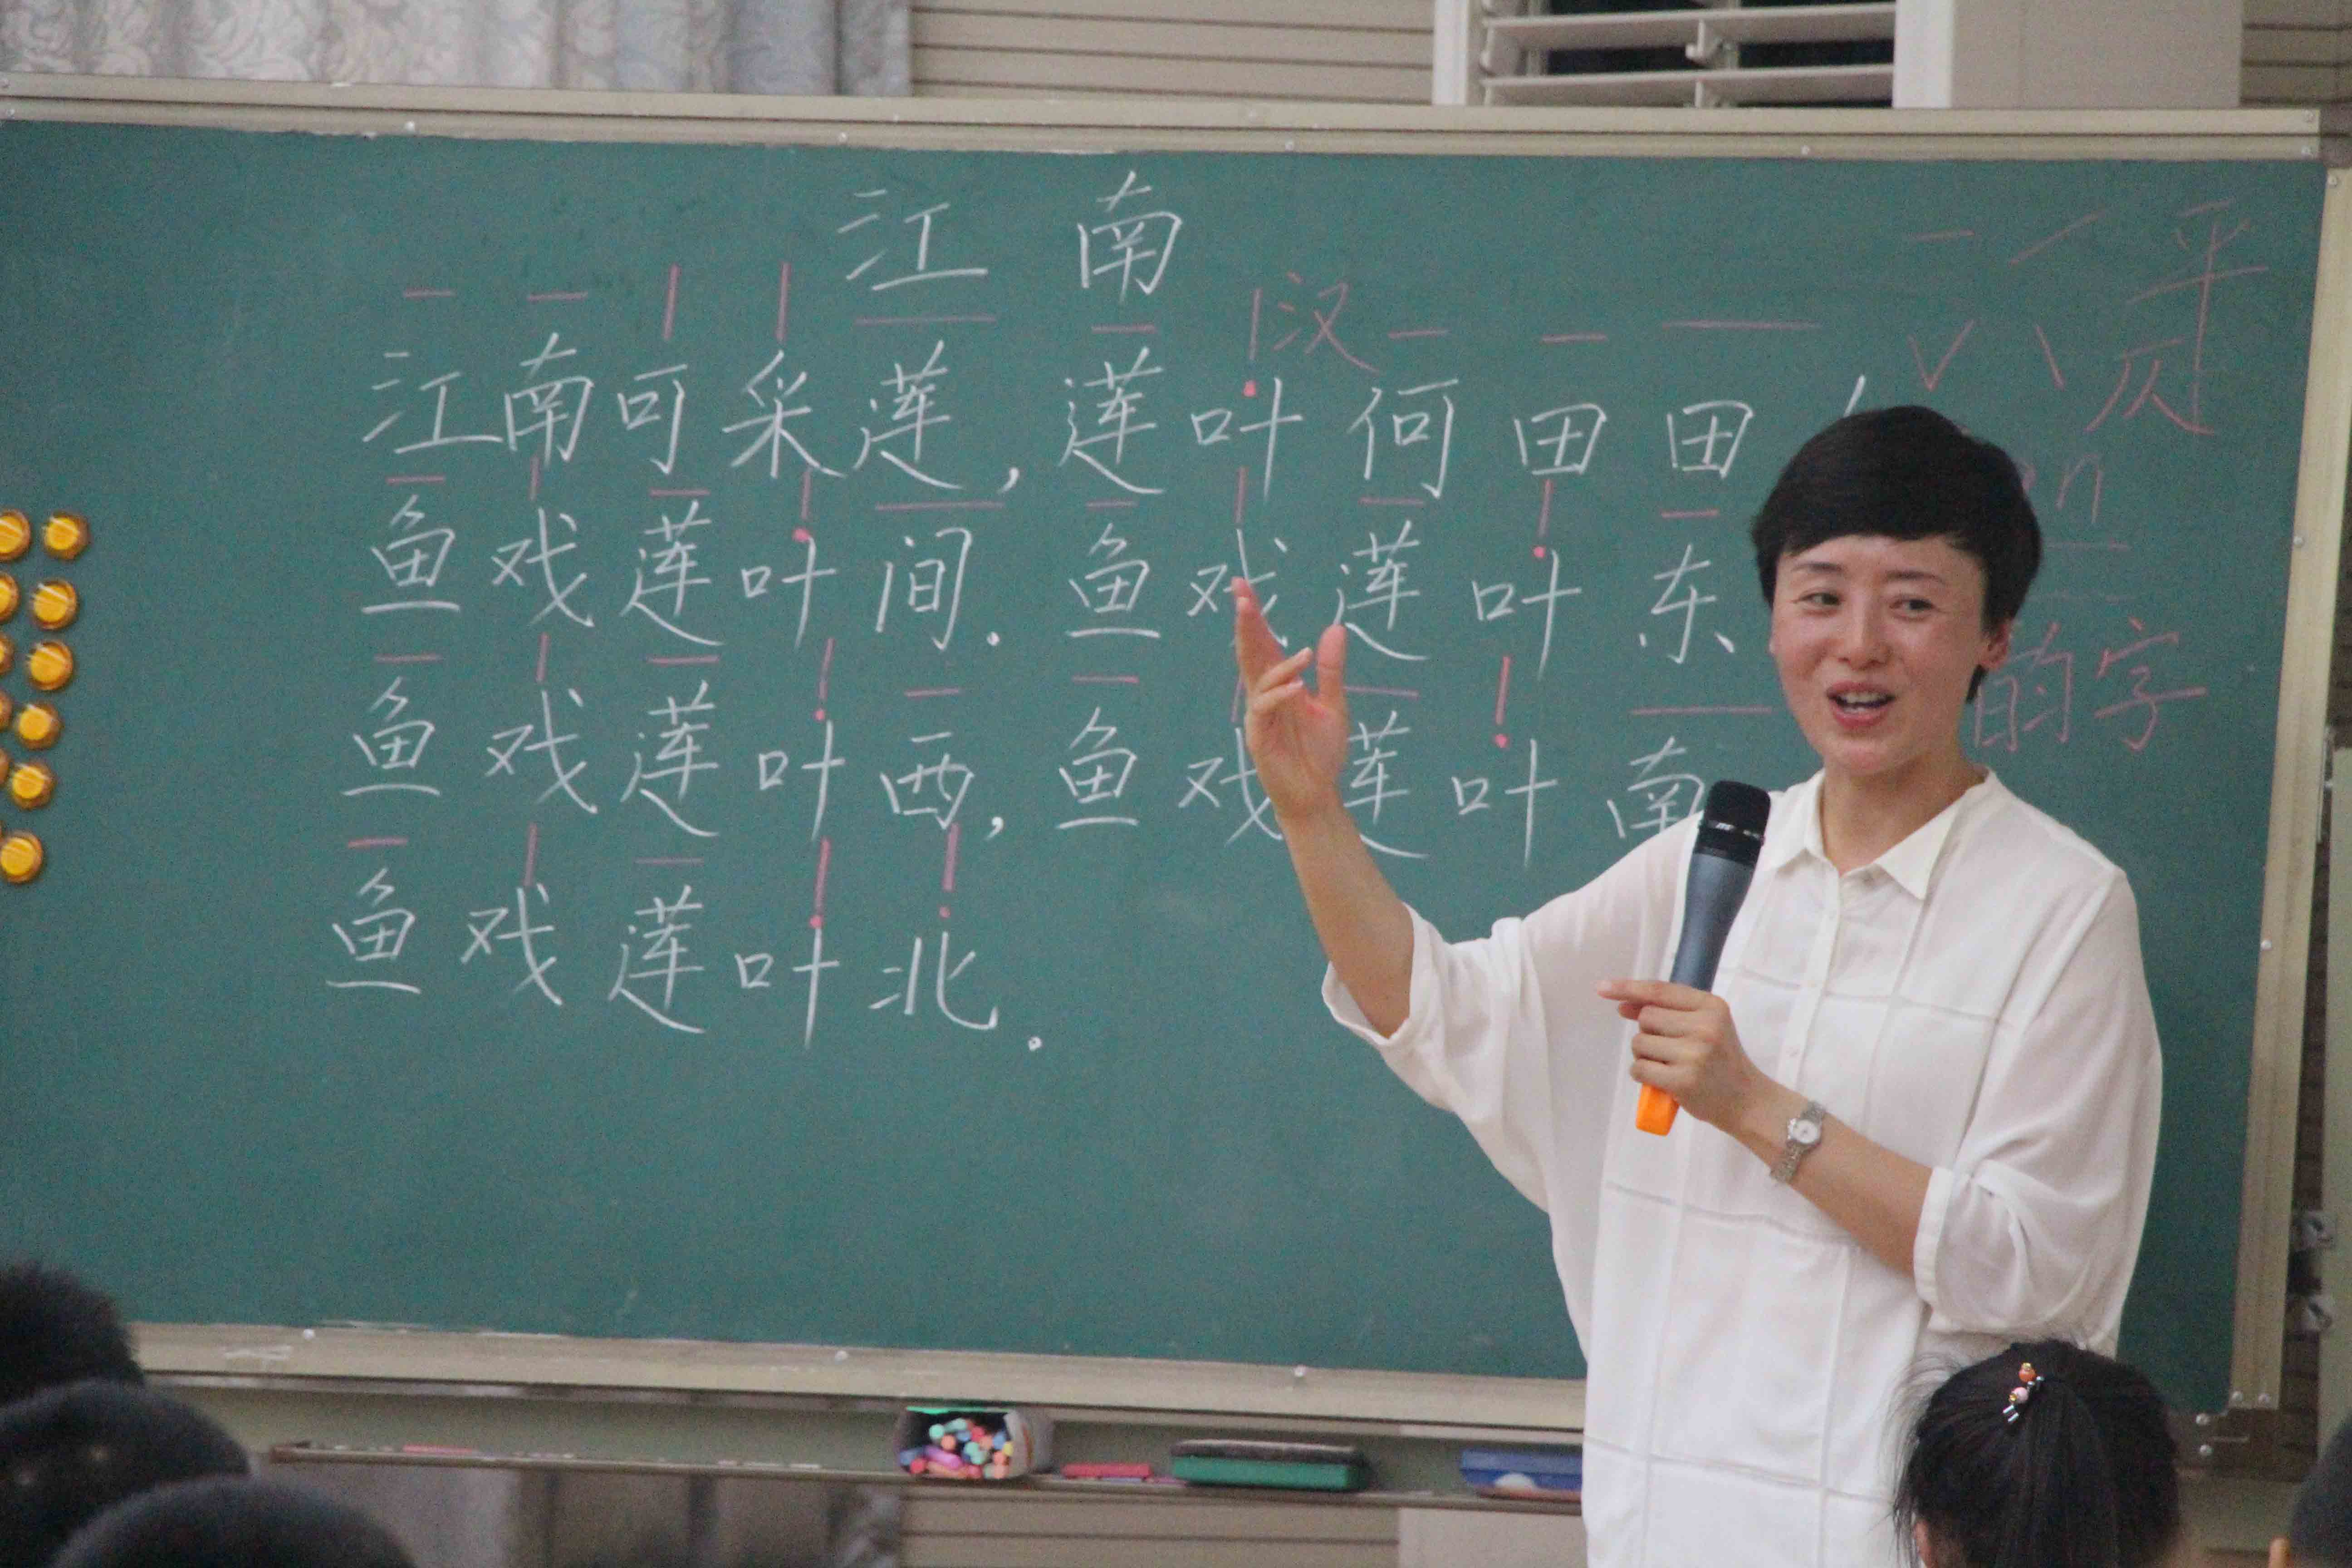 江南
江南可采莲，莲叶何田田
鱼戏莲叶间。鱼戏莲叶东
鱼戏莲叶西，鱼戏莲叶南
鱼戏莲叶北。
汉
平
仄
的字